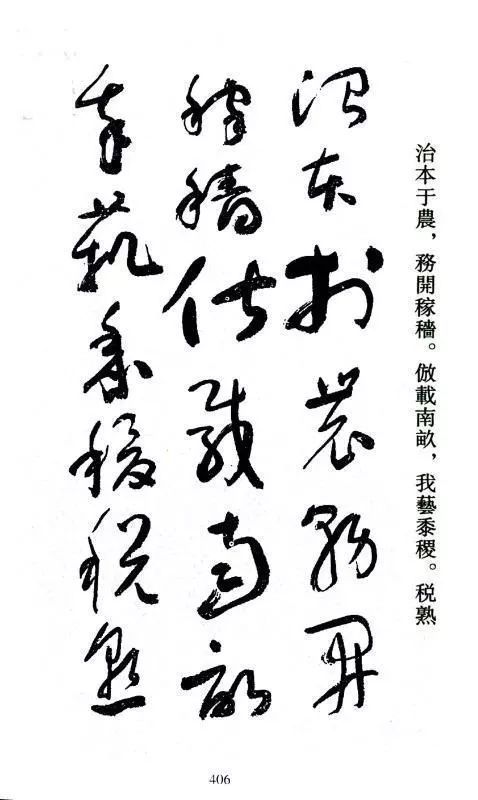 治本于農，務開稼穡。倣載南畝，我藝黍稷。税熟
治本於農務開
稼穡俶載南畝
我藝黍稷税熟
406